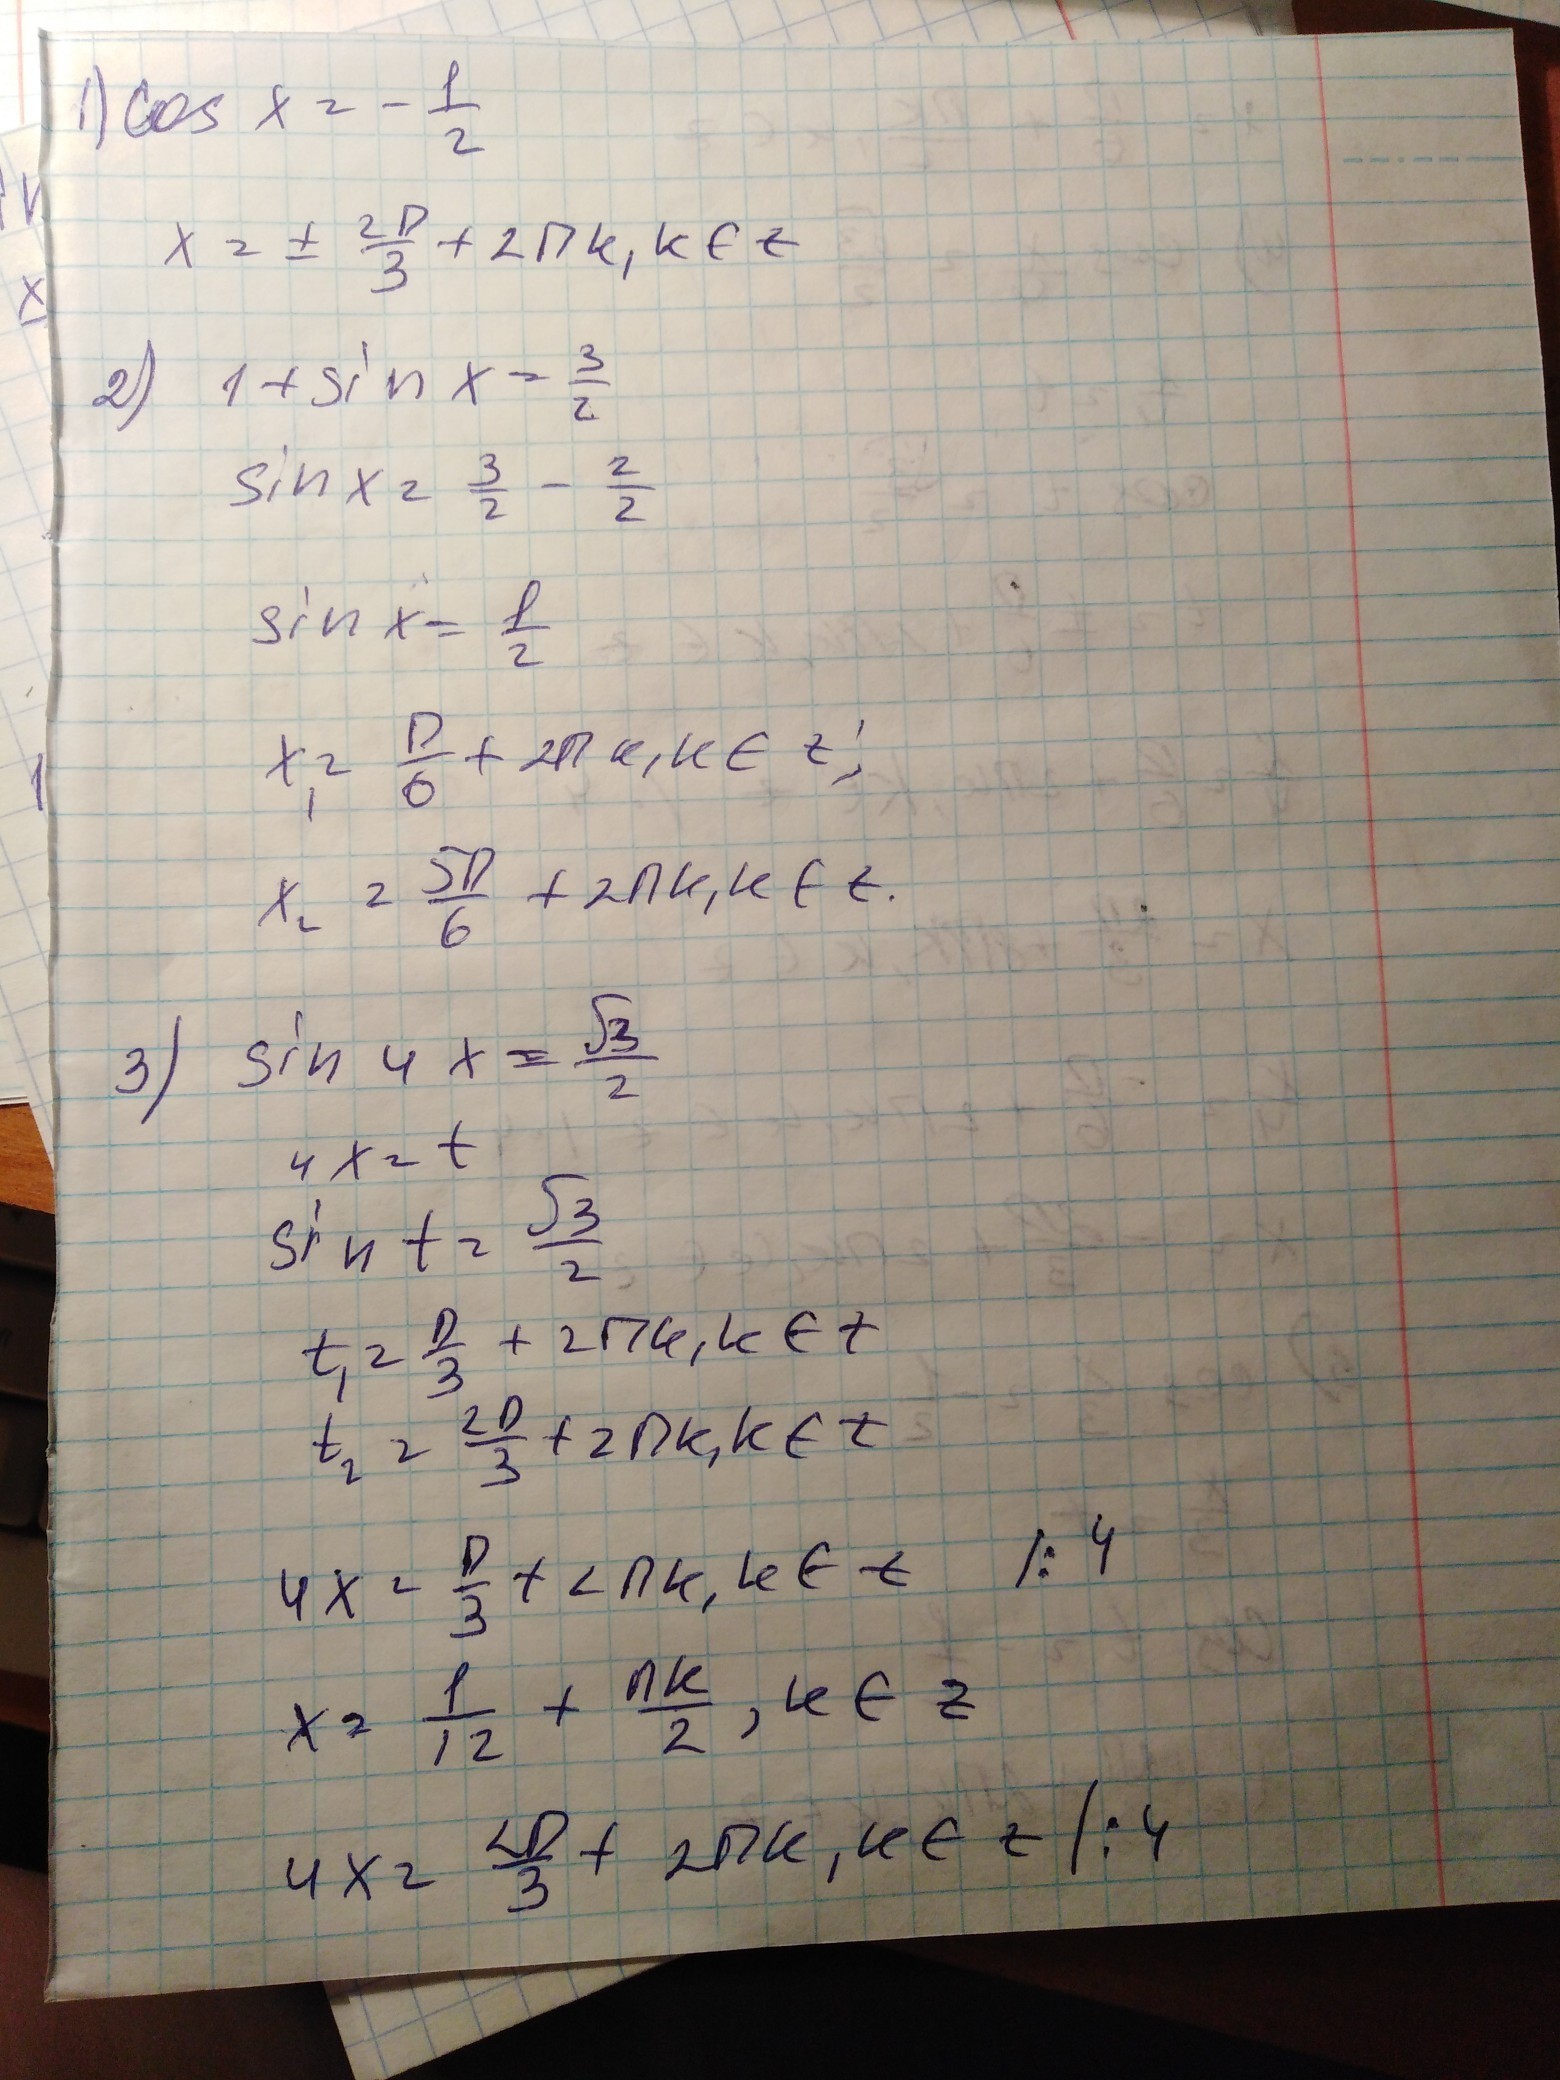 1) cos x = - 1/2
x = ± 2П/3 + 2Пk, k ∈ z
2) 1 + sin x = 3/2
sin x = 3/2 - 2/2
sin x = 1/2
x₁ = П/6 + 2Пk, k ∈ z;
x₂ = 5П/6 + 2Пk, k ∈ z.
3) sin 4x = √3/2
4x = t
sin t = √3/2
t₁ = П/3 + 2Пk, k ∈ z
t₂ = 2П/3 + 2Пk, k ∈ z
4x = П/3 + 2Пk, k ∈ z /: 4
x = 1/12 + Пk/2, k ∈ z
4x = 2П/3 + 2Пk, k ∈ z /: 4